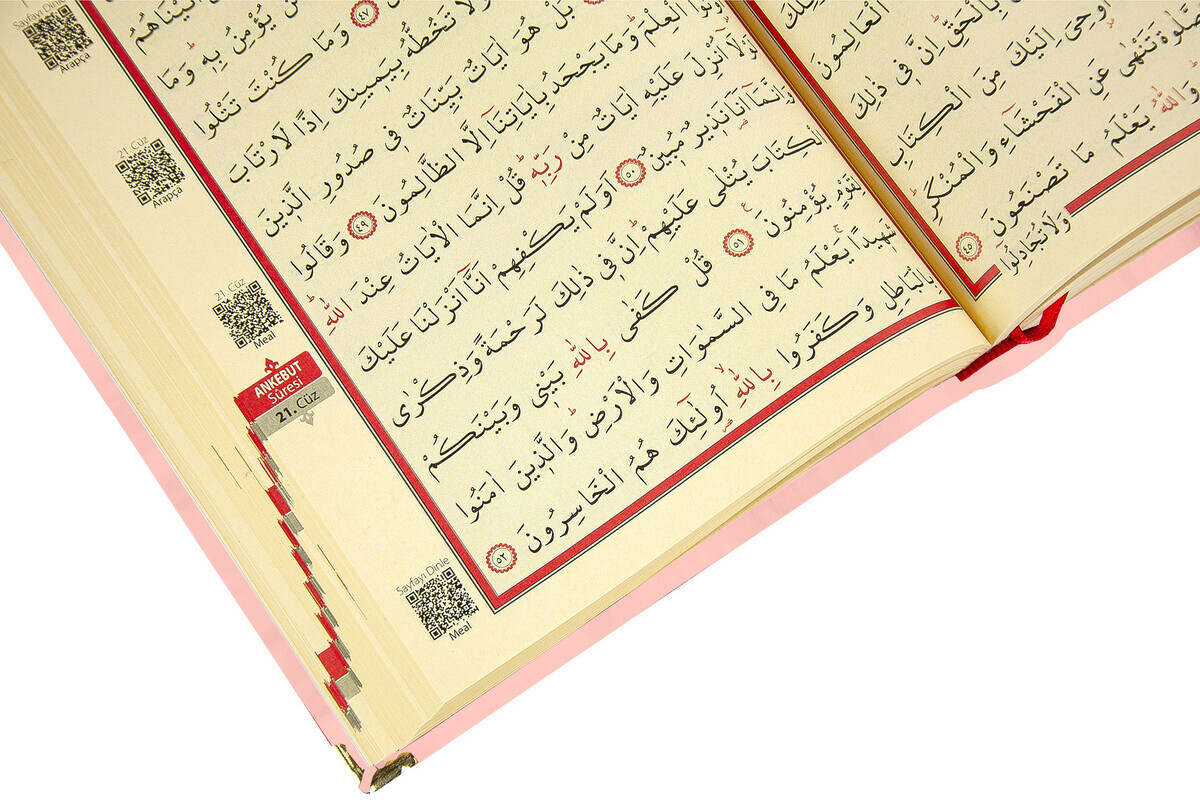 الْعَالِمُونَ
بِالْحَقِّ اِنَّ فٖى ذٰلِكَ
اُوحِىَ اِلَيْكَ مِنَ الْكِتَابِ
تَنْهٰى عَنِ الْفَحْشَٓاءِ وَالْمُنْكَرِ
وَاللّٰهُ يَعْلَمُ مَا تَصْنَعُونَ ٤٥
وَلَا تُجَادِلُٓوا
يُؤْمِنُ بِهٖ وَمَا
٤٧ وَمَا كُنْتَ تَتْلُوا
وَلَا تَخُطُّهُ بِيَمٖينِكَ اِذًا لَارْتَابَ
بَلْ هُوَ اٰيَاتٌ بَيِّنَاتٌ فٖى صُدُورِ الَّذٖينَ
الْعِلْمَ وَمَا يَجْحَدُ بِاٰيَاتِنَٓا اِلَّا الظَّالِمُونَ ٤٩ وَقَالُوا
لَوْلَٓا اُنْزِلَ عَلَيْهِ اٰيَاتٌ مِنْ رَبِّهٖ قُلْ اِنَّمَا الْاٰيَاتُ عِنْدَ اللّٰهِ
وَاِنَّمَٓا اَنَا۬ نَذٖيرٌ مُبٖينٌ ٥٠ اَوَلَمْ يَكْفِهِمْ اَنَّٓا اَنْزَلْنَا عَلَيْكَ
الْكِتَابَ يُتْلٰى عَلَيْهِمْ اِنَّ فٖى ذٰلِكَ لَرَحْمَةً وَذِكْرٰى
لِقَوْمٍ يُؤْمِنُونَ ٥١ قُلْ كَفٰى بِاللّٰهِ بَيْنٖى وَبَيْنَكُمْ
شَهٖيدًا يَعْلَمُ مَا فِى السَّمٰوَاتِ وَالْاَرْضِ وَالَّذٖينَ اٰمَنُوا
بِالْبَاطِلِ وَكَفَرُوا بِاللّٰهِ اُو۬لٰٓئِكَ هُمُ الْخَاسِرُونَ ٥٢
Sayfayı Dinle
Arapça
21. Cüz
Arapça
21. Cüz
Meal
ANKEBUT
Sûresi
21. Cüz
Sayfayı Dinle
Meal